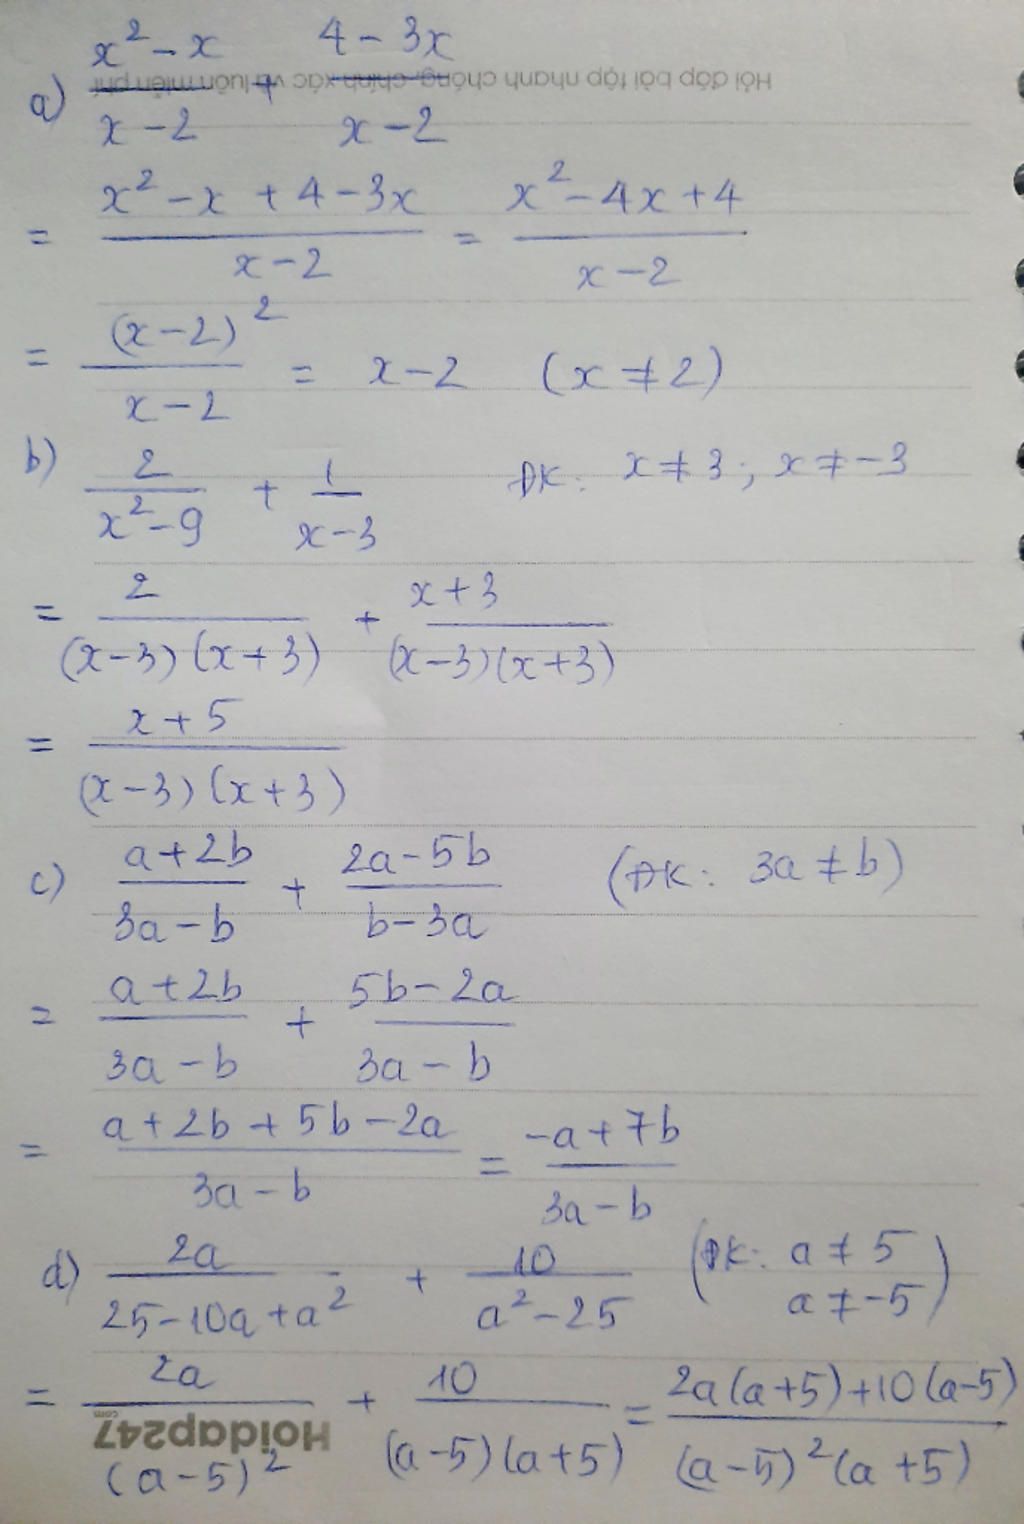 a) \frac{x^2 - x}{x - 2} + \frac{4 - 3x}{x - 2}
Hỏi đáp bài tập nhanh chóng, chính xác và luôn miễn phí
= \frac{x^2 - x + 4 - 3x}{x - 2} = \frac{x^2 - 4x + 4}{x - 2}
= \frac{(x - 2)^2}{x - 2} = x - 2 (x ≠ 2)
b) \frac{2}{x^2 - 9} + \frac{1}{x - 3} ĐK: x ≠ 3; x ≠ -3
= \frac{2}{(x - 3)(x + 3)} + \frac{x + 3}{(x - 3)(x + 3)}
= \frac{x + 5}{(x - 3)(x + 3)}
c) \frac{a + 2b}{3a - b} + \frac{2a - 5b}{b - 3a} (ĐK: 3a ≠ b)
= \frac{a + 2b}{3a - b} + \frac{5b - 2a}{3a - b}
= \frac{a + 2b + 5b - 2a}{3a - b} = \frac{-a + 7b}{3a - b}
d) \frac{2a}{25 - 10a + a^2} + \frac{10}{a^2 - 25} (ĐK: a ≠ 5 a ≠ -5)
= \frac{2a}{(a - 5)^2} + \frac{10}{(a - 5)(a + 5)} = \frac{2a(a + 5) + 10(a - 5)}{(a - 5)^2(a + 5)}
Hoidap247.com